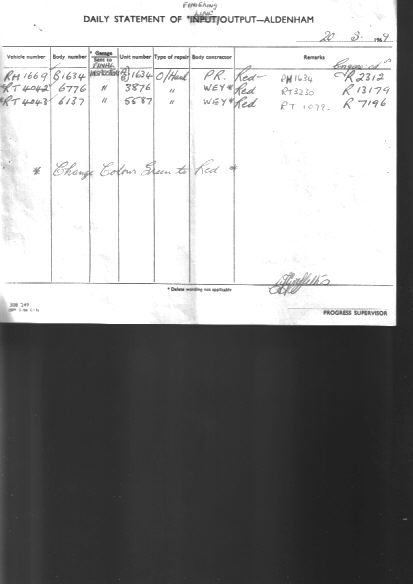 FINISHING
LINE
DAILY STATEMENT OF *INPUT/OUTPUT—ALDENHAM
20 3 1969
Vehicle number Body number * Garage Sent to FINAL INSPECTION Unit number Type of repair Body contractor Remarks Engine
RM 1669 B 1634 1634 O/Haul P.R. Red RM1634 R 2312
*RT 4042 6776 " 3876 " WEY* Red RT3230 R 13179
*RT 4043 6137 " 5587 " WEY* Red RT 1079 R 7196
* Change Colour Green to Red *
* Delete wording not applicable
PROGRESS SUPERVISOR